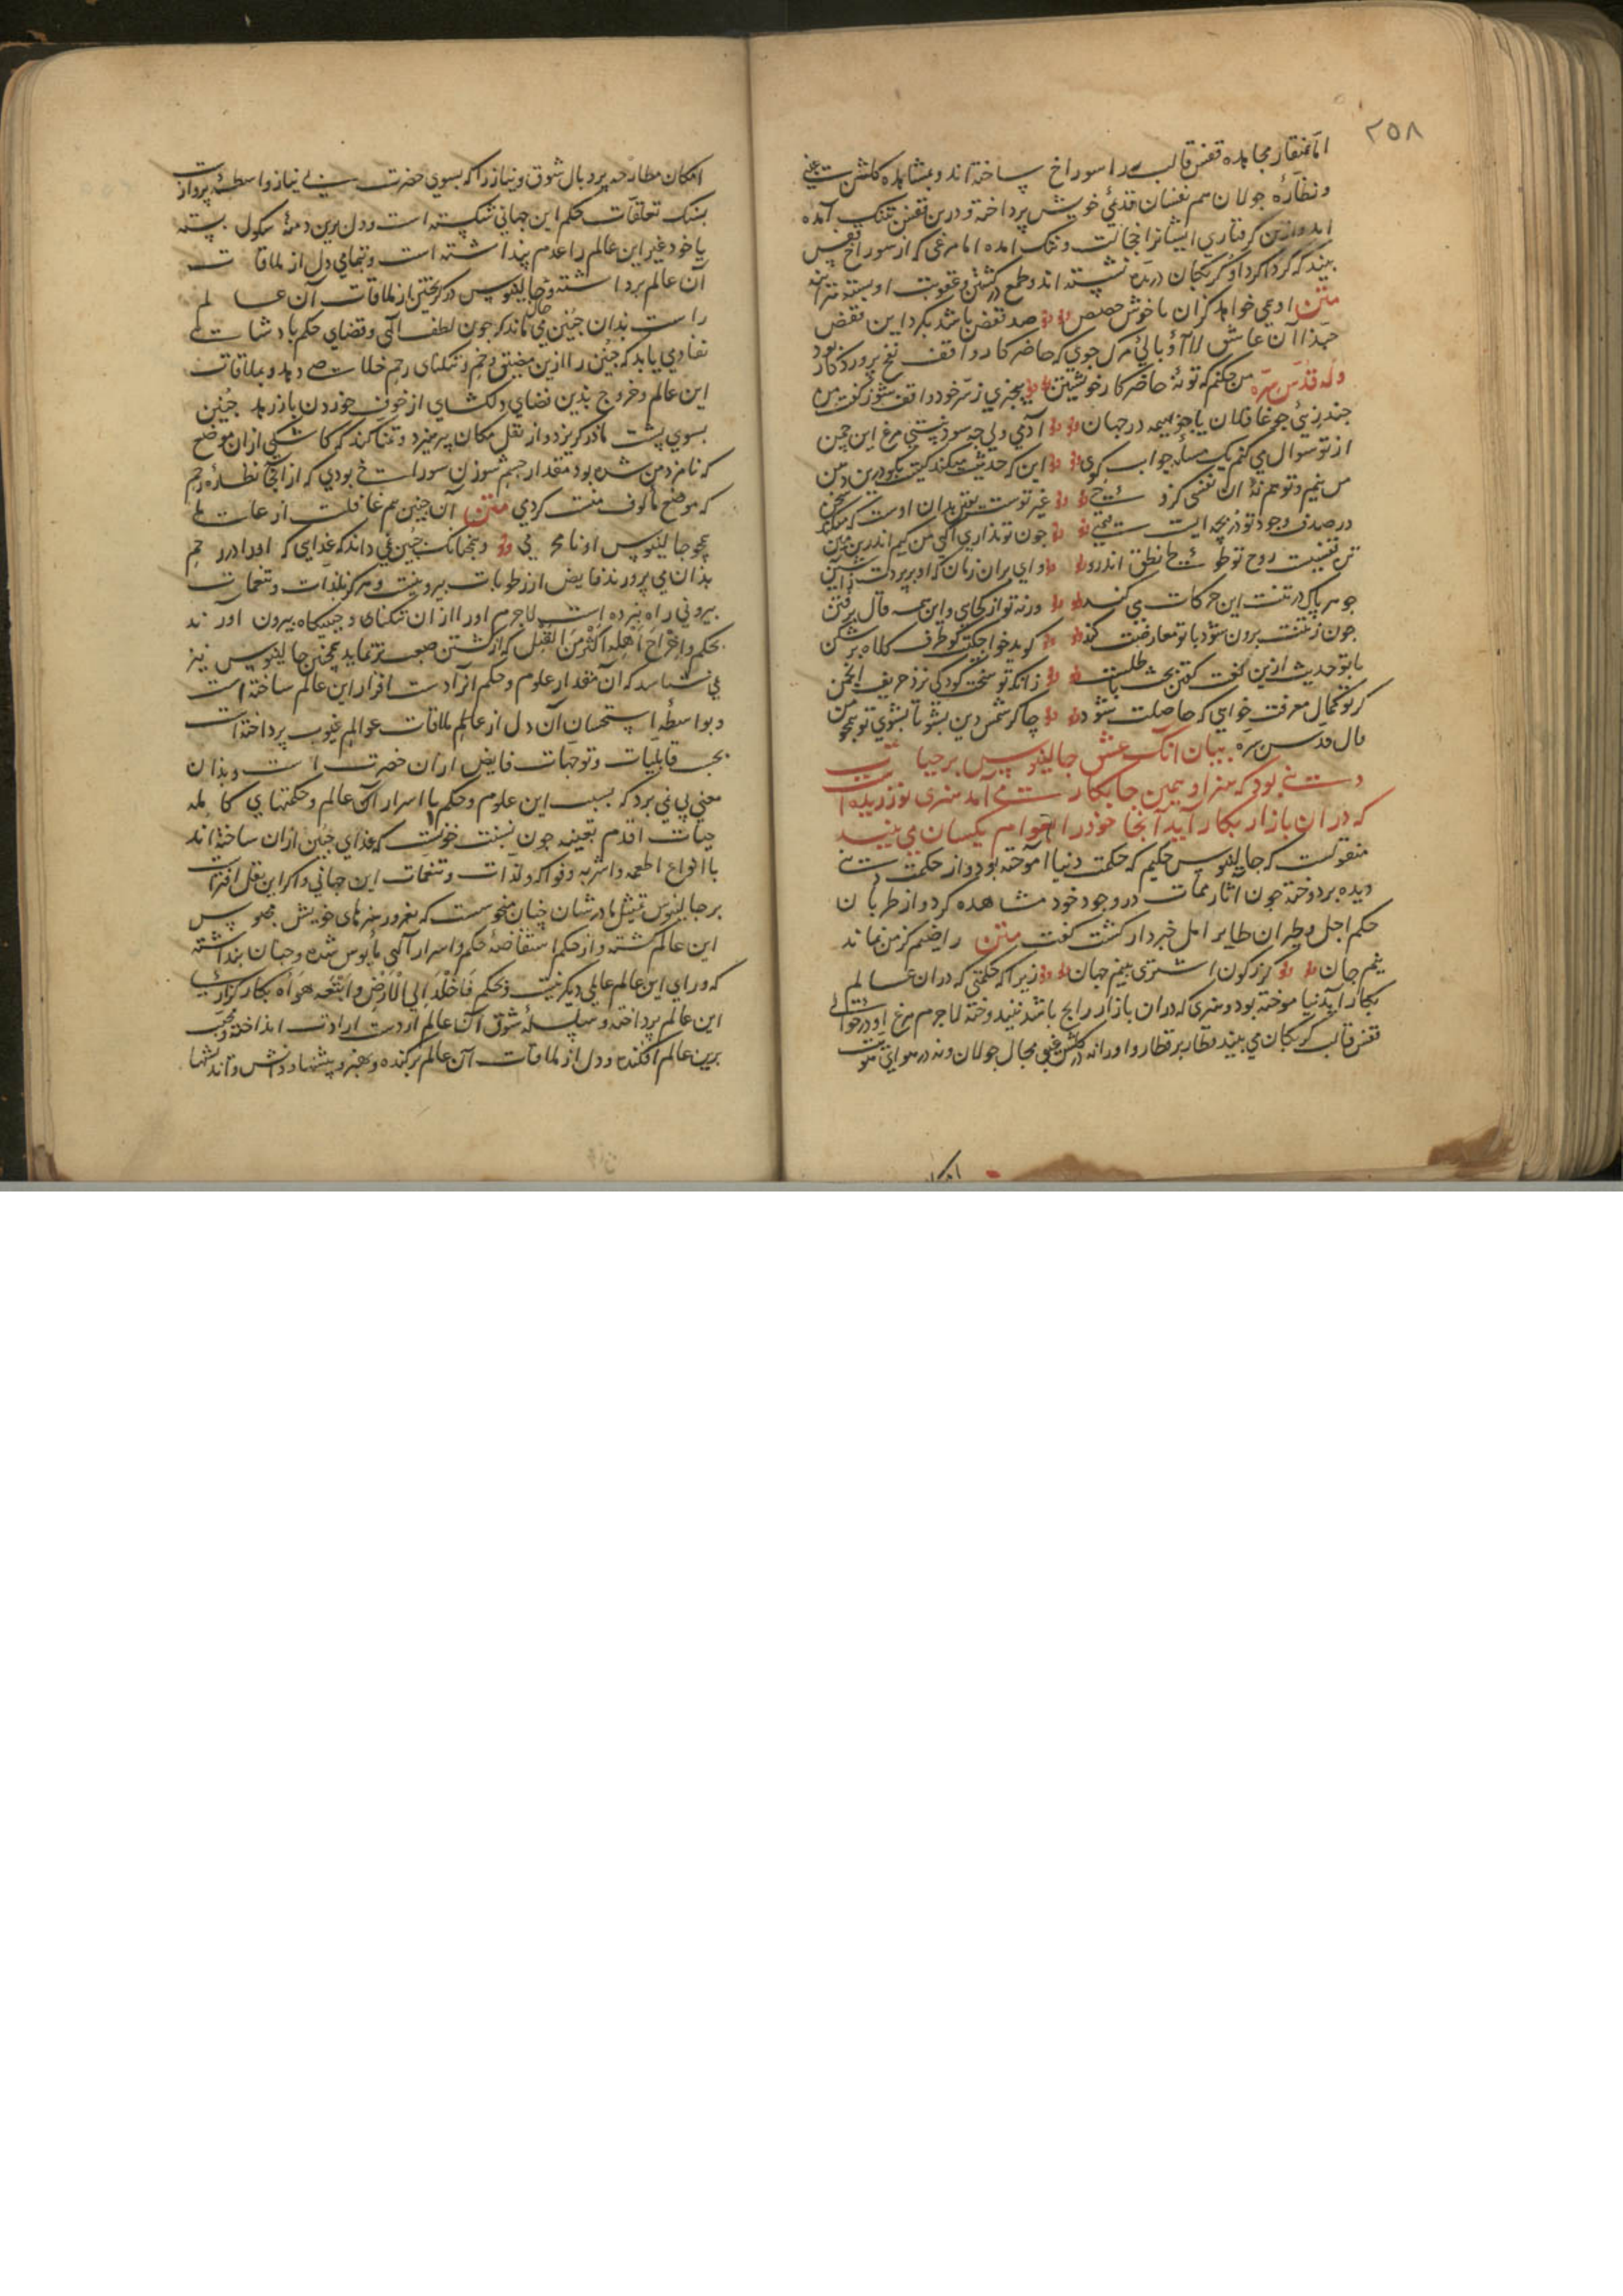 ٢٥٨
اما بمنقار مجاهده قفس قالب را سوراخ ساخته اند و بمشاهده گلشن غیبی
و نظارهٔ جولان هم نفسان قدسی خویش پرداخته و درین قفس تنک آمده
اند و ازین گرفتاری ایشانرا خجالت و ننک آمده اما مرغی که از سوراخ قفس
بیند که گرداگرد او گربکان درنده نشسته اند و طمع در کشتن و عقوبت او بسته
متن او همی خواهد کزان ناخوش حصص صد قفس باشد بگرد این قفص
حبذا آن عاشق لاابالی مرک جوی که حاضر کار و واقف نفخ پروردکار بود
وله قدس سره من چکنم که تو نهٔ حاضر کار خویشتن بیخبری ز سر خود واقف شو ز گفت من
چند بزیی چو غافلان یا چو بهیمه در جهان آدمی ولی چه سود نیستی مرغ این چمن
از تو سوال می کنم یک مسله جواب کوی این که حدیث میکند کیست بگو درین دهن
من نیم و تو هم نهٔ آن نفسی کزو غیر توست یقین بدان اوست که میکند سخن
در صدف وجود تو در بچه ایست چون تو نداری آگهی من کیم اندرین
تن قفسست روح تو طوطی نطق اندرو وای بران زمان که او بر پرد
جوهر پاک در تنت این حرکات می کند ورنه تو از کجایی و این همه قال
چون ز تنت برون شود با تو معارضت کند گوید خواجه گو طرف کلاه بر شکن
با تو حدیث ازین نمت گفتن بحث باطلست زانکه تو سخت کودکی نزد حریف انجمن
گر تو کمال معرفت خواهی که حاصلت شود چاکر شمس دین بشو تا بشوی تو همچو من
قال قدس سره بیان آنک عشق جالینوس بر حیات
دنیی بود که هنر او همین جا بکار می آمد هنری نورزیده است
که در آن بازار بکار آید آنجا خود را بعوام یکسان می بیند
منقولست که جالینوس حکیم که حکمت دنیا آموخته بود و از حکمت
دیده بردوخته چون آثار ممات در وجود خود مشاهده کرد و از طربان
حکم اجل و طیران طایر امل خبردار گشت گفت متن راضیم کز من نماند
نیم جان کز کون استری بینم جهان زیرا که حکمتی که در آن عالم
بکار آید نیاموخته بود و هنری که در آن بازار رایج باشد نیندوخته لاجرم مرغ او در حوالی
قفس قالب گربکان می بیند قطار بر قطار و او را نه در گلشن غیبی مجال جولان و نه در هوای
امکان
امکان مطارحه پر و بال شوق و نیاز را که بسوی حضرت بی نیاز واسطهٔ پروازست
بسنک تعلقات حکم این جهانی شکسته است و دل برین دمنهٔ بسته
یا خود غیر این عالم را عدم پنداشته است و بتمامی دل از ملاقات
آن عالم برداشته و جالینوس در گریختن از ملاقات آن عالم
راست بدان جنین می ماند که چون لطف الهی و قضای حکم پادشاهی
نفاذی یابد که جنین را ازین مضیق و تنکنای رحم خلاصی دهد و بملاقات
این عالم و خروج بدین فضای دلکشای از خوف خوردن باز رهد جنین
بسوی پشت مادر گریزد و از نقل مکان پرهیزد و تمنا کند که کاشکی ازان موضع
که نامزد من شده بود مقدار چشم سوزن سوراخی بودی که از آنجا نظارهٔ رحم
که موضع مألوف منست کردمی متن آن جنین هم غافلست از عالمی
همچو جالینوس او نامحرمی و همچنانک جنین نمی داند که غذایی که او را در رحم
بدان می پرورند فایض از رطوبات بیرونیست و هرگز بلذات و تنعمات
بیرونی راه نبرده است لاجرم او را از آن تنکنای و حبسگاه بیرون آورند
بحکم و اخراج اهله اکبر من القتل که از کشتن صعب تر نماید همچنین جالینوس نیز
نمی شناسد که آن مقدار علوم و حکم آنرا دست افزار این عالم ساخته است
و بواسطهٔ استحسان آن دل از عالم ملاقات عوالم غیوب پرداخته است
بحسب قابلیات و توجهات فایض از آن حضرت است و بدان
معنی پی نمی برد که بسبب این علوم و حکم با اسرار آن عالم و حکمتهای کامله
حیات اقدم بعینه چون نسبت خونست که غذای جنین ازان ساخته اند
با انواع اطعمه و اشربه و فواکه و لذات و تنعمات این جهانی و اگر این نقل افتراست
بر جالینوس تمثیل ما در شان چنان منحوسست که بغرور هنرهای خویش محبوس
این عالم گشته و از حکم استفاضهٔ حکم و اسرار الهی مأیوس شده و چنان پنداشته
که ورای این عالم عالمی دیگر نیست و بحکم فاخلد الی الارض و اتبع هواه بکار گزاری
این عالم پرداخته و سلسلهٔ شوق آن عالم از دست ارادت انداخته و محبت
برین عالم افکنده و دل از ملاقات آن عالم برکنده و بهنر و پیشها و دانش و اندیشها